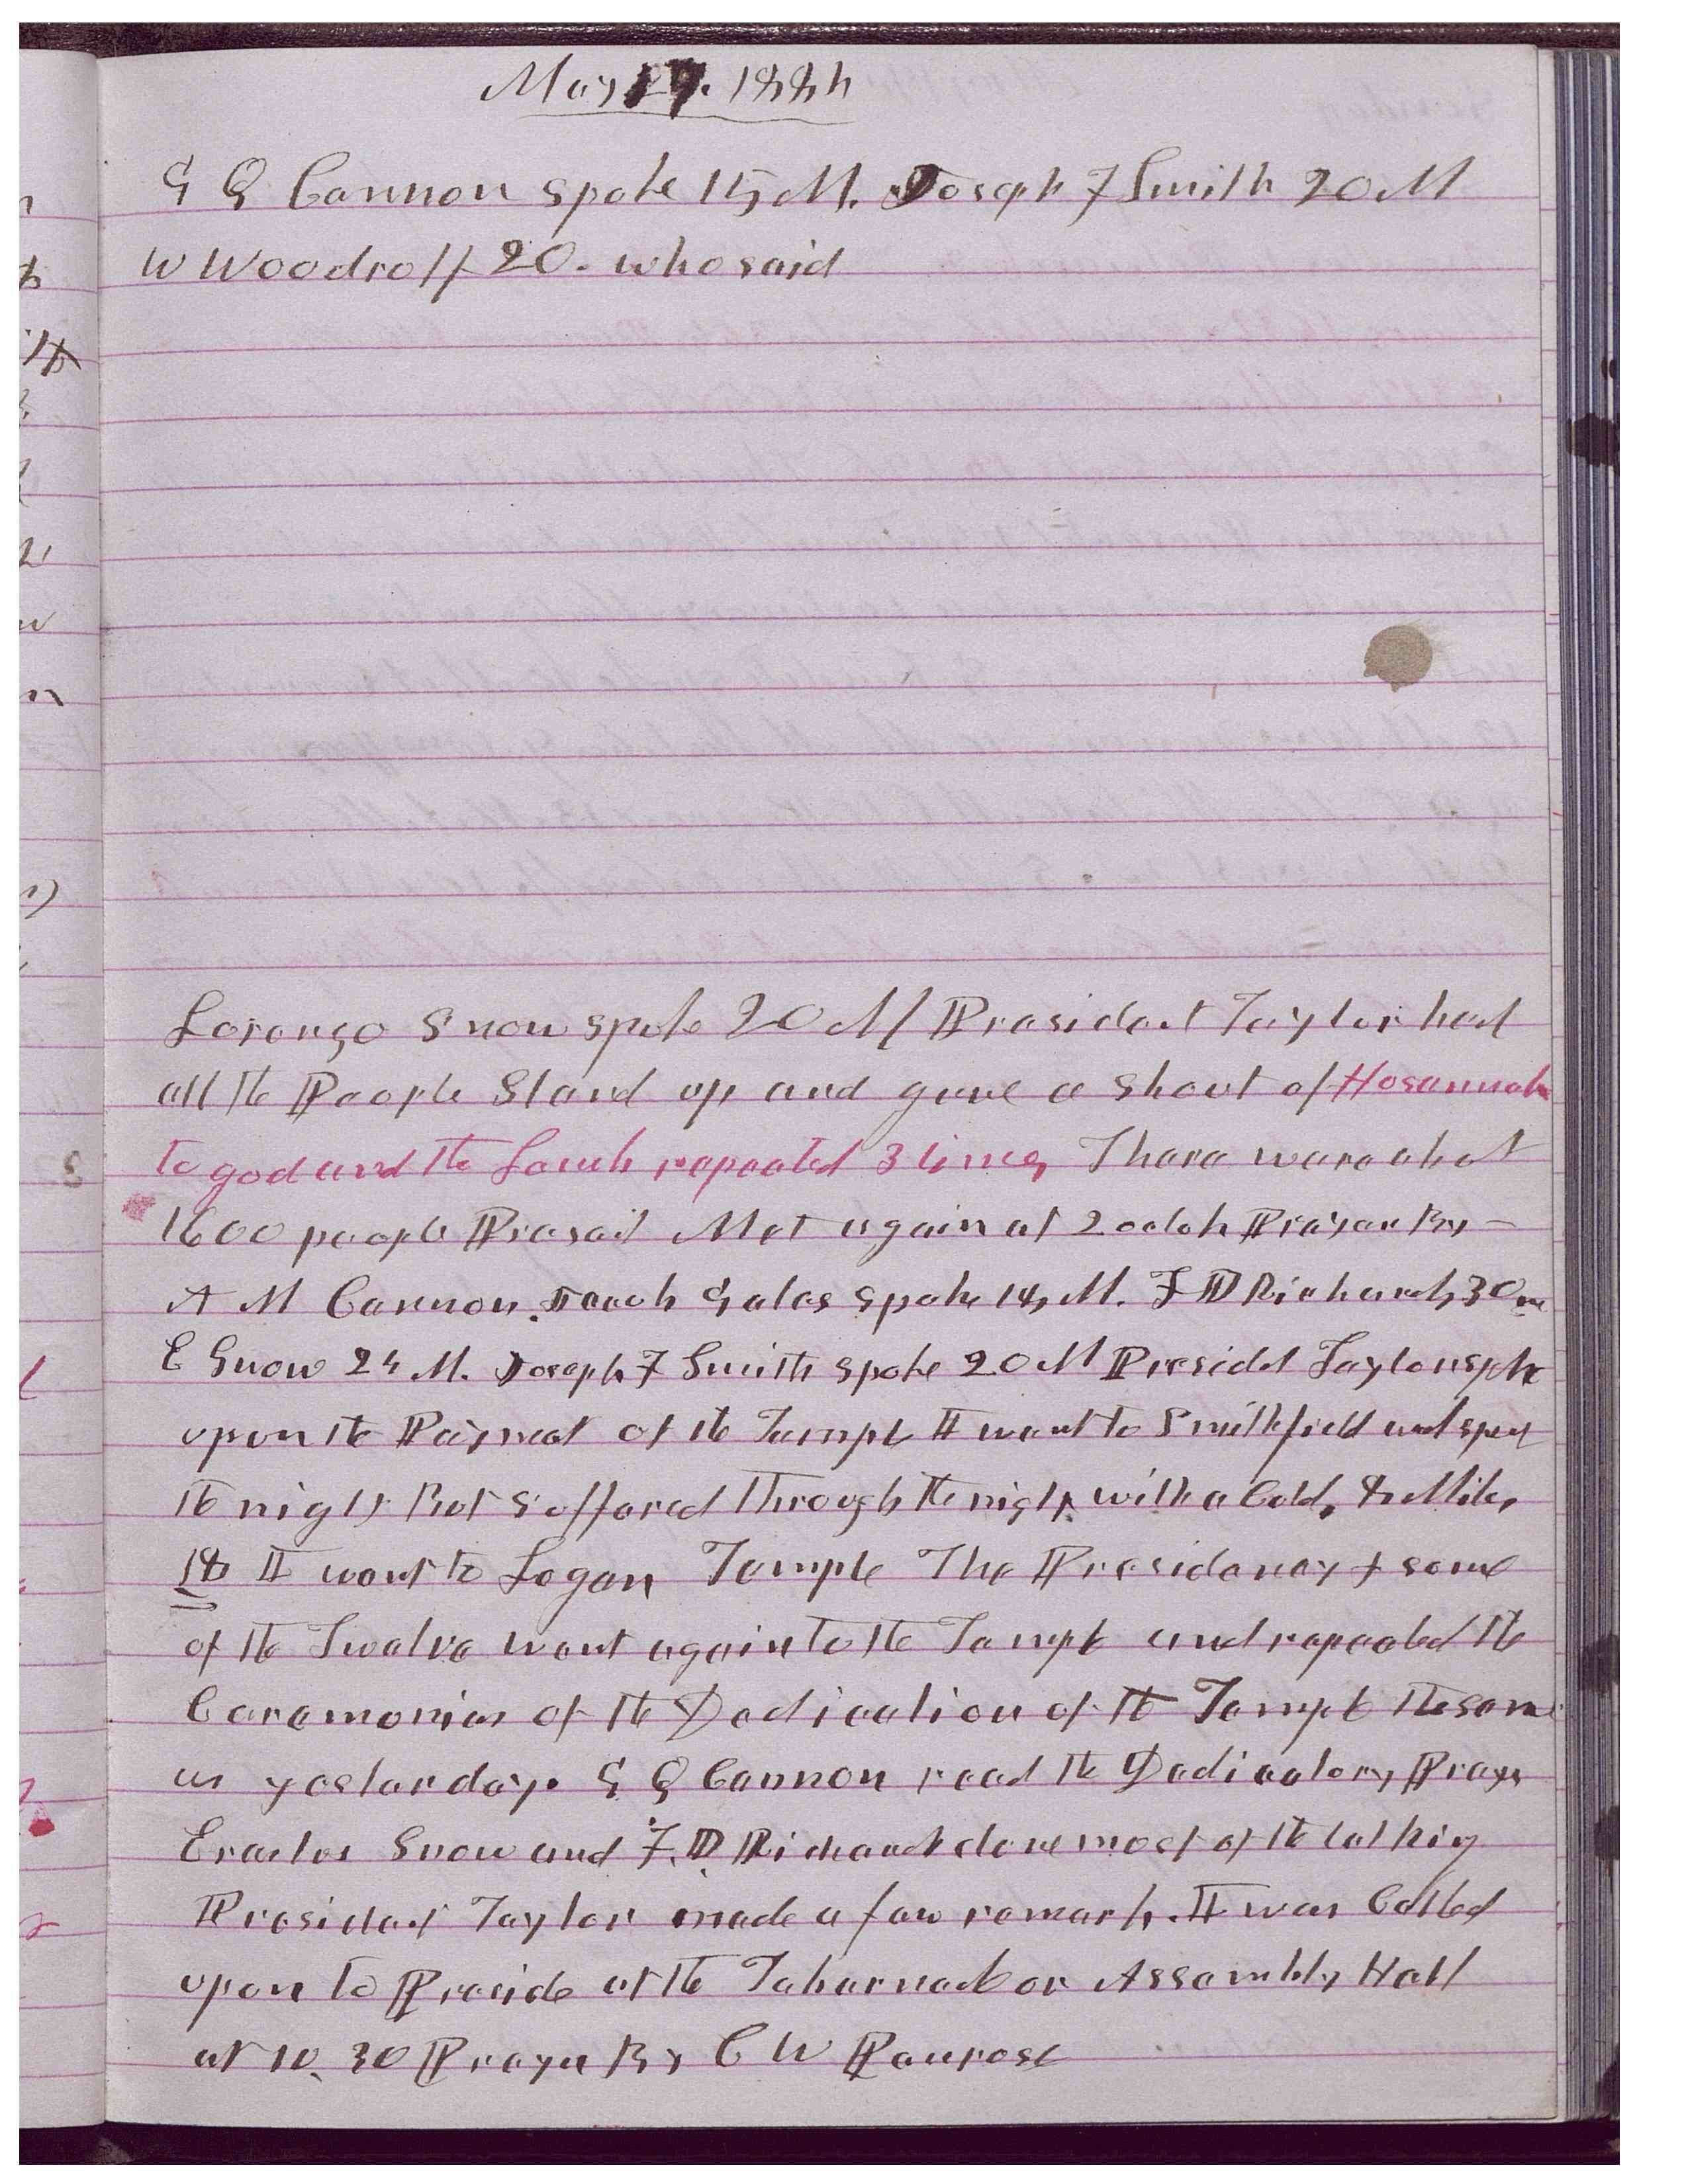 May 17. 1884
G Q Cannon spoke 15 M. Joseph F Smith 20 M
W Woodruff 20. who said
Lorenzo Snow spoke 20 M President Taylor had
all the People Stand up and gave a Shout of Hosannah
to god and the Lamb repeated 3 times There were about
1600 people Present Met again at 2 oclok Prayer By -
A M Cannon. Jacob Gates spoke 14 M. F D Richards 30 m
E Snow 24 M. Joseph F Smith spoke 20 M Presidet Taylor spoke
upon the Payment of the Temple I went to Smithfield and spent
the night But suffered through the night with a Cold, 8 Miles,
18 I went to Logan Temple The Presidency & some
of the Twelve went again to the Temple and repeated the
Ceremonies of the Dedication of the Temple the same
as yesterday. G Q Cannon read the Dedicatory Prayer
Erastus Snow and F. D Richards done most of the talking
President Taylor made a few remarks. I was Called
upon to Preside at the Tabernacle or Assembly Hall
at 10. 30 Prayer By C W Penrose